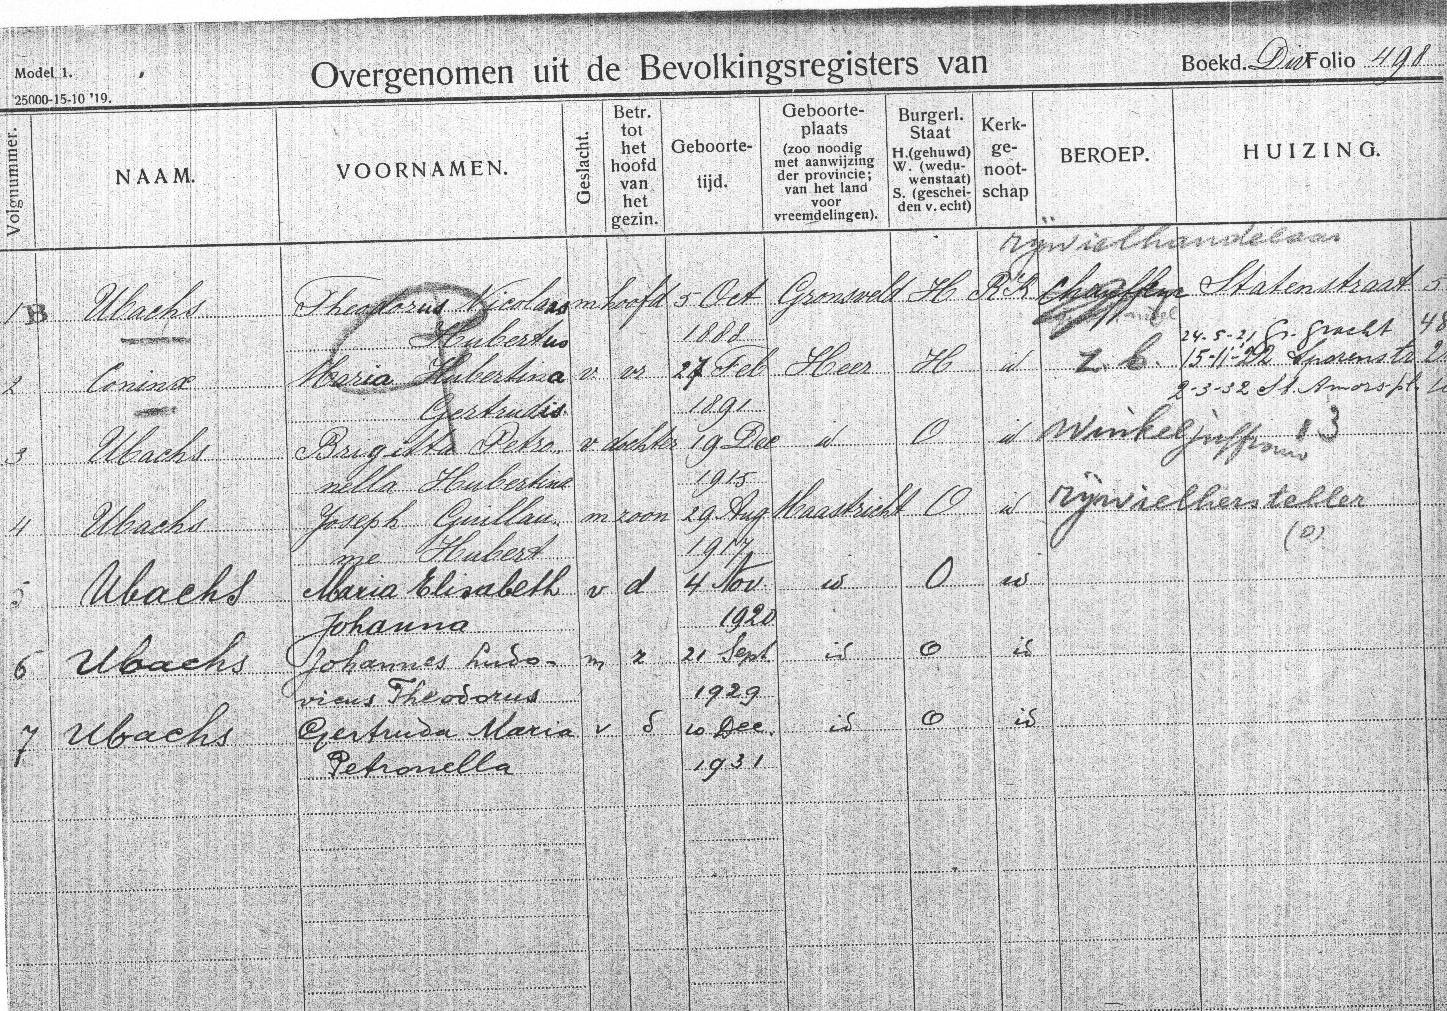 Model 1.
25000-15-10 '19.
Overgenomen uit de Bevolkingsregisters van
Boekd. Div Folio 498
Volgnummer.
NAAM.
VOORNAMEN.
Geslacht.
Betr. tot het hoofd van het gezin.
Geboorte-tijd.
Geboorte-plaats (zoo noodig met aanwijzing der provincie; van het land voor vreemdelingen).
Burgerl. Staat H.(gehuwd) W. (wedu-wenstaat) S. (geschei-den v. echt)
Kerk-ge-noot-schap
BEROEP.
HUIZING.
rijwielhandelaar
1 B Ubachs Theodorus Nicolaas m hoofd 5 Oct Gronsveld H RK chauffeur Statenstraat 5
Hubertus 1888 24-5-21 Gr. gracht 48
2 Coninx Maria Hubertina v vr 27 Feb Heer H id z.b. 15-11-
Gertrudis 1891 2-3-32 St. Amorspl.
3 Ubachs Brigitta Petro- v dochter 19 Dec id O id Winkeljuffrouw 13
nella Hubertina 1915
4 Ubachs Joseph Guillau- m zoon 29 Aug Maastricht O id rijwielhersteller
me Hubert 1917 (O)
5 Ubachs Maria Elisabeth v d 4 Nov id O id
Johanna 1920
6 Ubachs Johannes Ludo- m z 21 Sept id O id
vicus Theodorus 1929
7 Ubachs Gertruda Maria v d 10 Dec. id O id
Petronella 1931